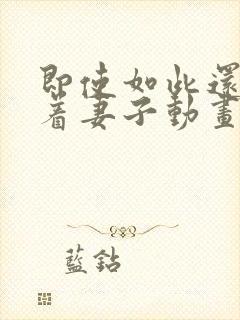 即使如此還
著妻子動畫
藍鈷